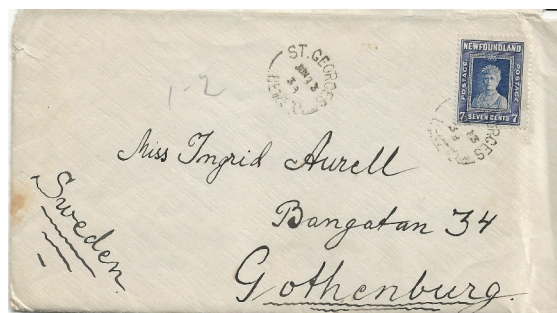 ST. GEORGES
JUN 13
39
NEWFOUNDLAND
POSTAGE
POSTAGE
7 SEVEN CENTS 7
ORGES
13
39
1-2
Miss Ingrid Aurell
Bangatan 34
Gothenburg.
Sweden.